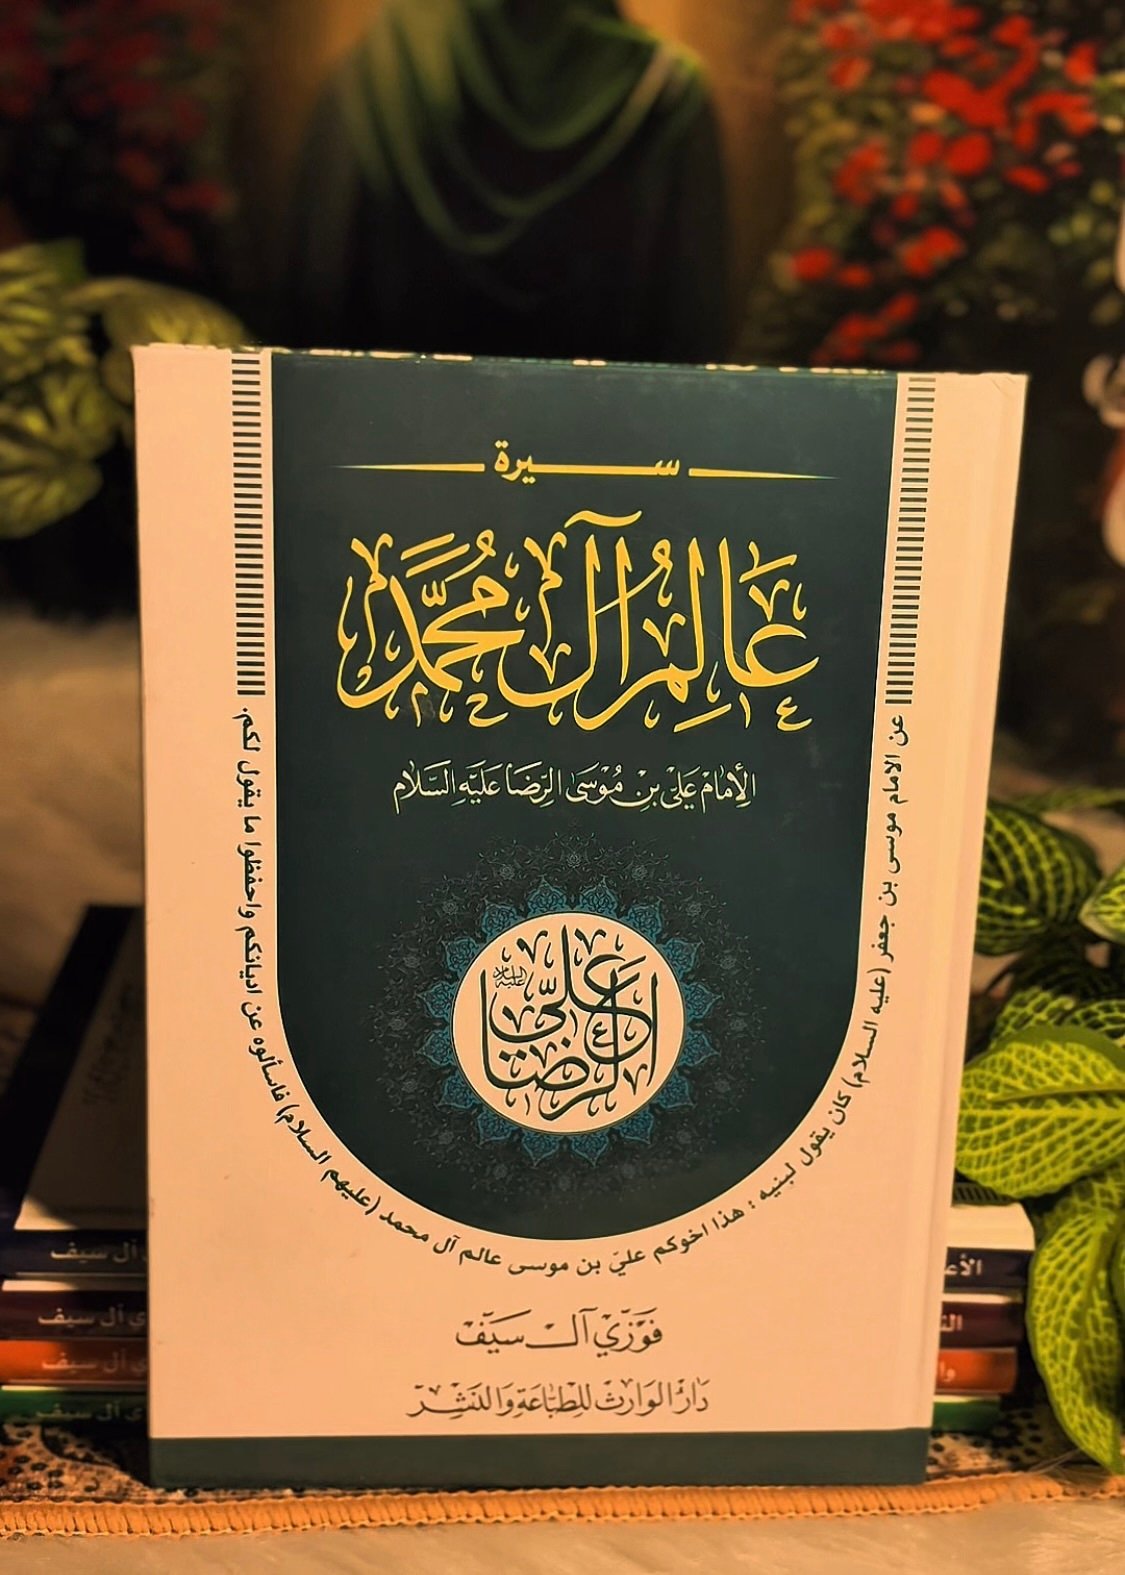 سيرة
عَالِمُ آلِ مُحَمَّدٍ
الإِمَامُ عَلِيّ بن مُوسَى الرِّضَا عَلَيْهِ السَّلَام
عَلِيّ
الرضا
عليه السلام
عن الامام موسى بن جعفر (عليه السلام) كان يقول لبنيه : هذا اخوكم عليّ بن موسى عالم آل محمد (عليهم السلام) فاسألوه عن اديانكم واحفظوا ما يقول لكم.
فَوْزِي آل سَيْف
دَارُ الوَارِث لِلطِّبَاعَةِ وَالنَشْر
آل سيف
ي آل سيف
ي آل سيف
ي آل سيف